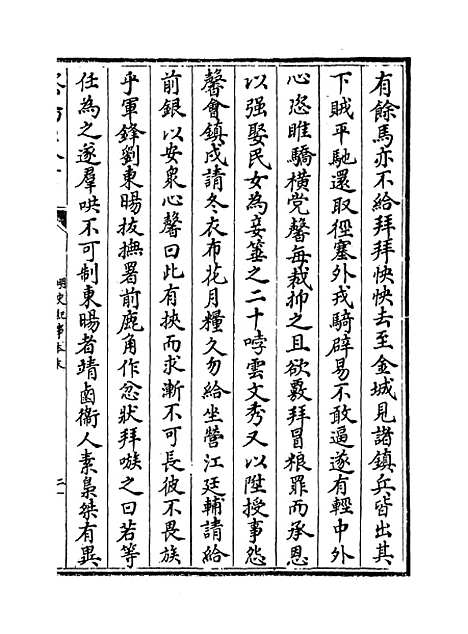 有餘馬亦不給拜拜怏怏去至金城見諸鎮兵皆出其
下賊平馳還取徑塞外戎騎辟易不敢逼遂有輕中外
心恣睢驕橫党馨每裁抑之且欲覈拜冒糧罪而承恩
以强娶民女為妾箠之二十哱雲文秀又以陞授事怨
馨會鎮戍請冬衣布花月糧久勿給坐營江廷輔請給
前銀以安衆心馨曰此有挾而求漸不可長彼不畏族
乎軍鋒劉東暘拔撫署前鹿角作忿狀拜嗾之曰若等
任為之遂羣哄不可制東暘者靖鹵衛人素梟桀有異
明史紀事本末